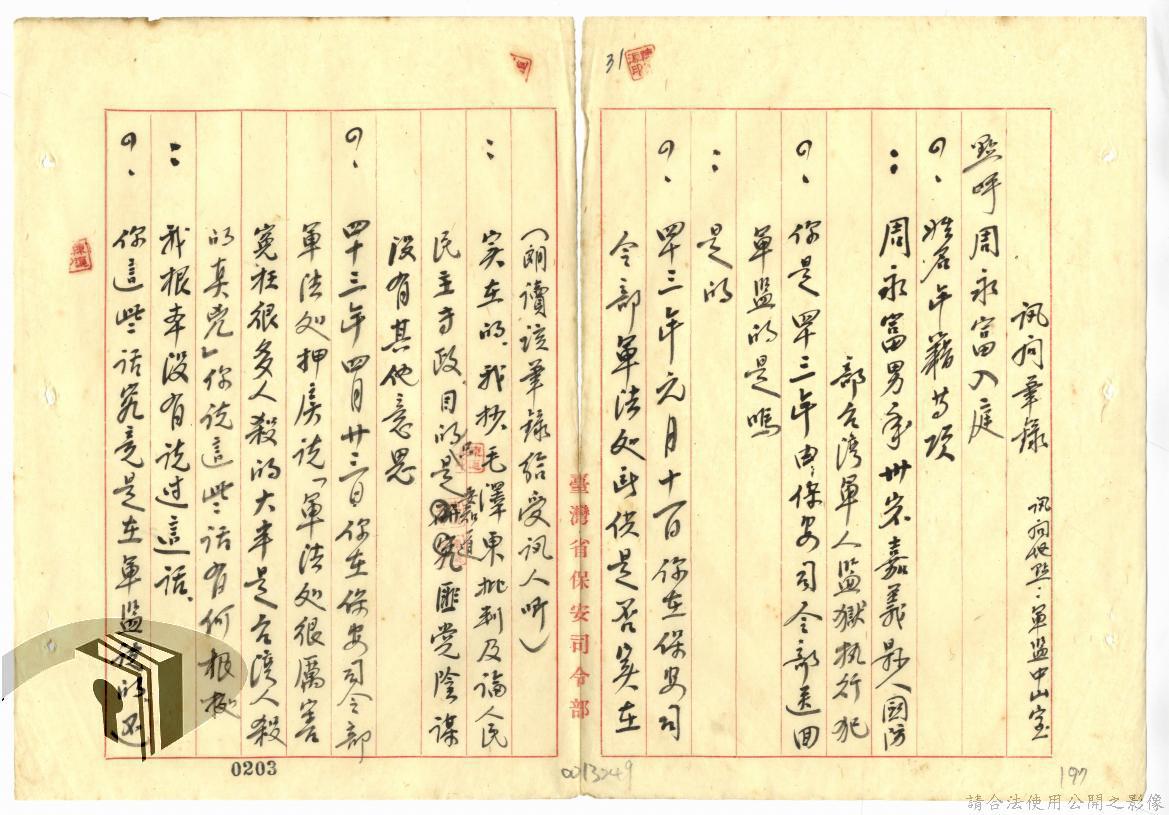 訊問筆錄 訊問地點：軍監中山室
點呼周永富入庭
問、姓名年籍等項
：周永富男年卅歲嘉義縣人國防
部台灣軍人監獄执行犯
問、你是四十三年由保安司令部送回
軍監的是嗎
：是的
問、四十三年元月十一日你在保安司
令部軍法处所供是否实在
（朗讀該筆錄給受訊人听）
：实在的、我抄毛澤東批判及論人民
民主专政、目的是 匪党陰谋
没有其他意思
問、四十三年四月廿三日你在保安司令部
軍法处押房说「軍法处很厲害
冤枉很多人殺的大半是台湾人殺
的真兇」你说這些話有何根据
：我根本没有说过這話、
問、你這些話究竟是在軍監
臺灣省保安司令部
31
0203
0013249
197
請合法使用公開之影像